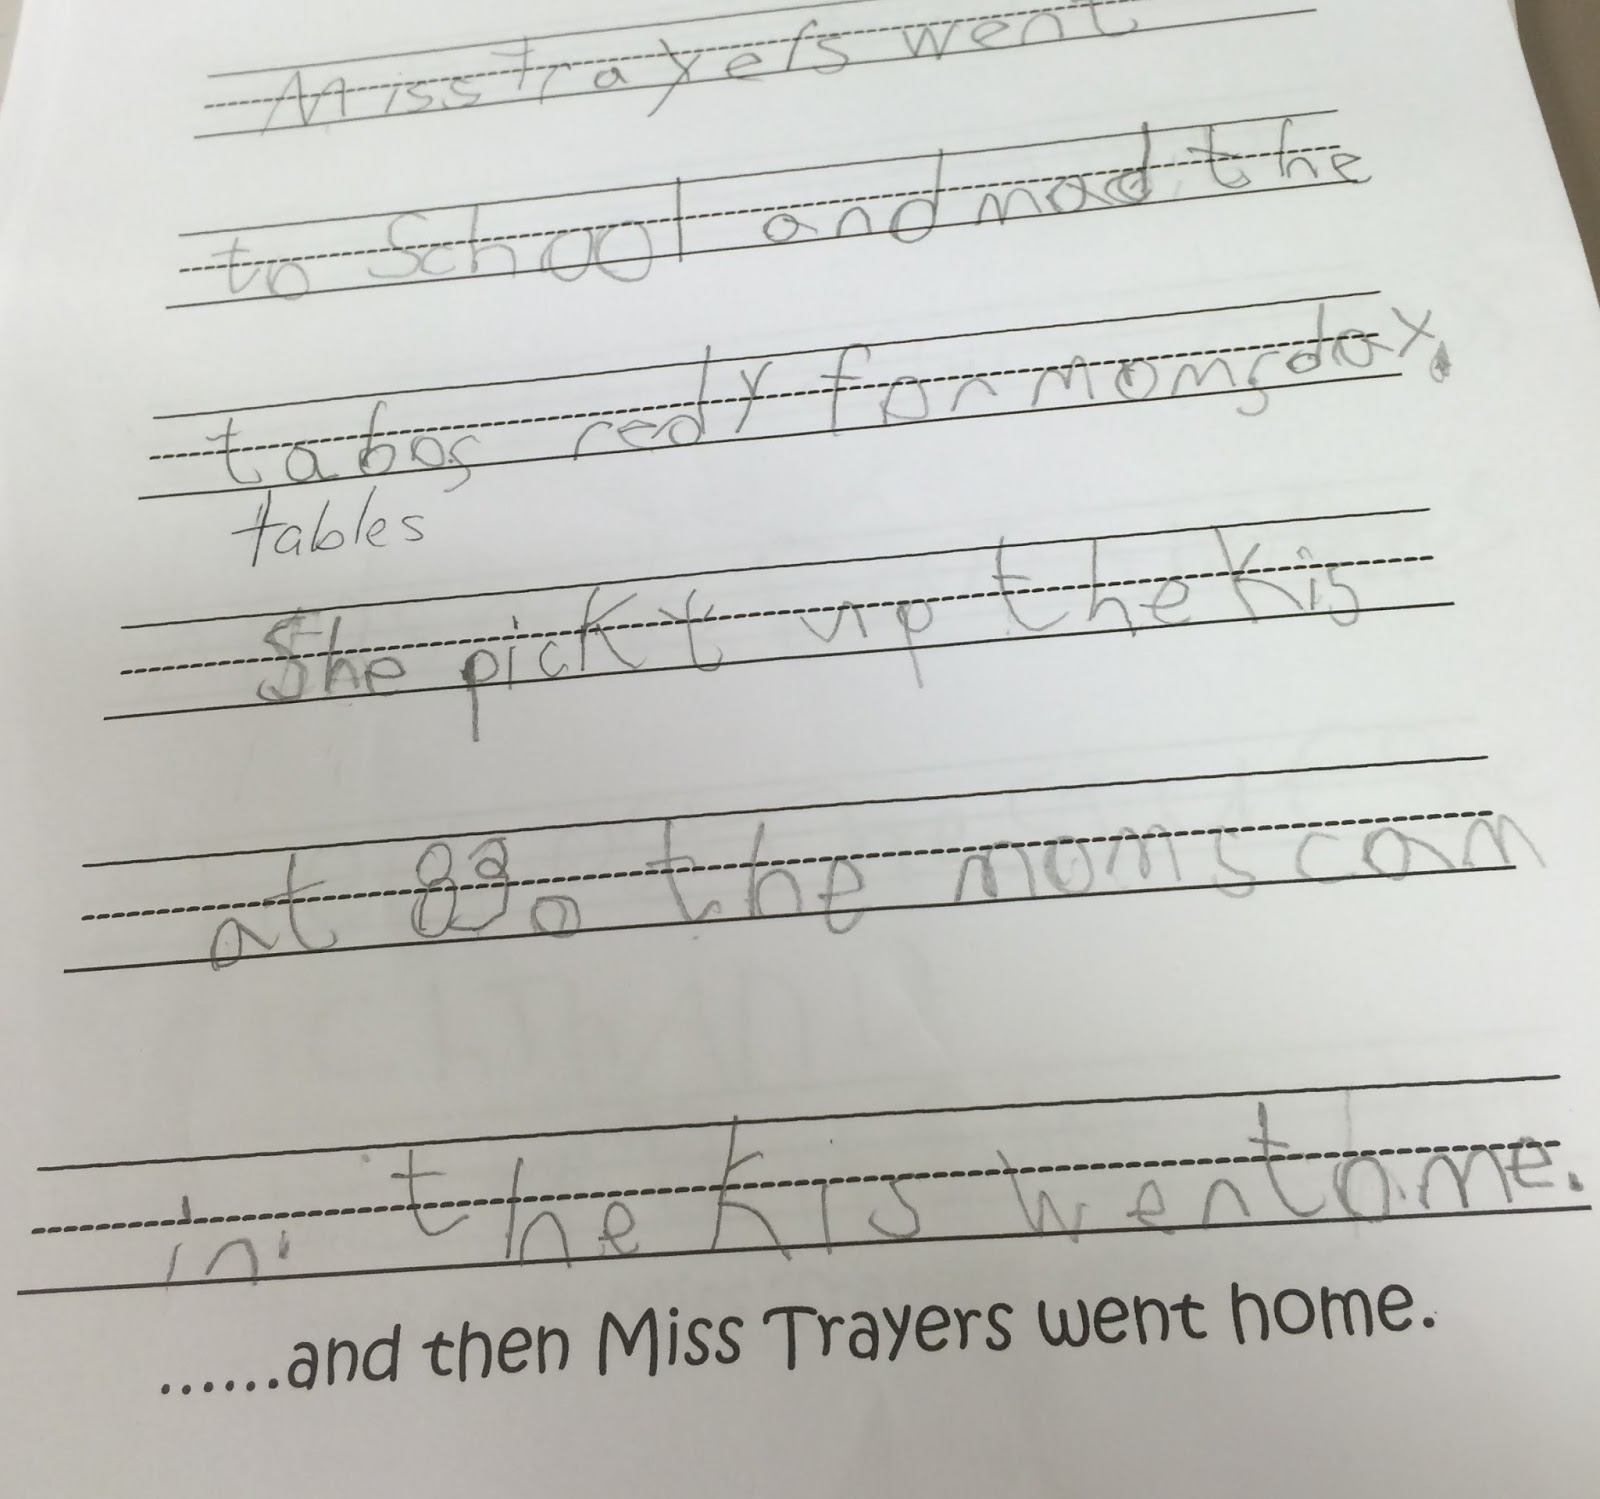 Miss Trayers went
to School and mad the
tabos redy for momsday.
tables
She pickt up the kis
at 830 the moms cam
in. the kis wentome.
......and then Miss Trayers went home.